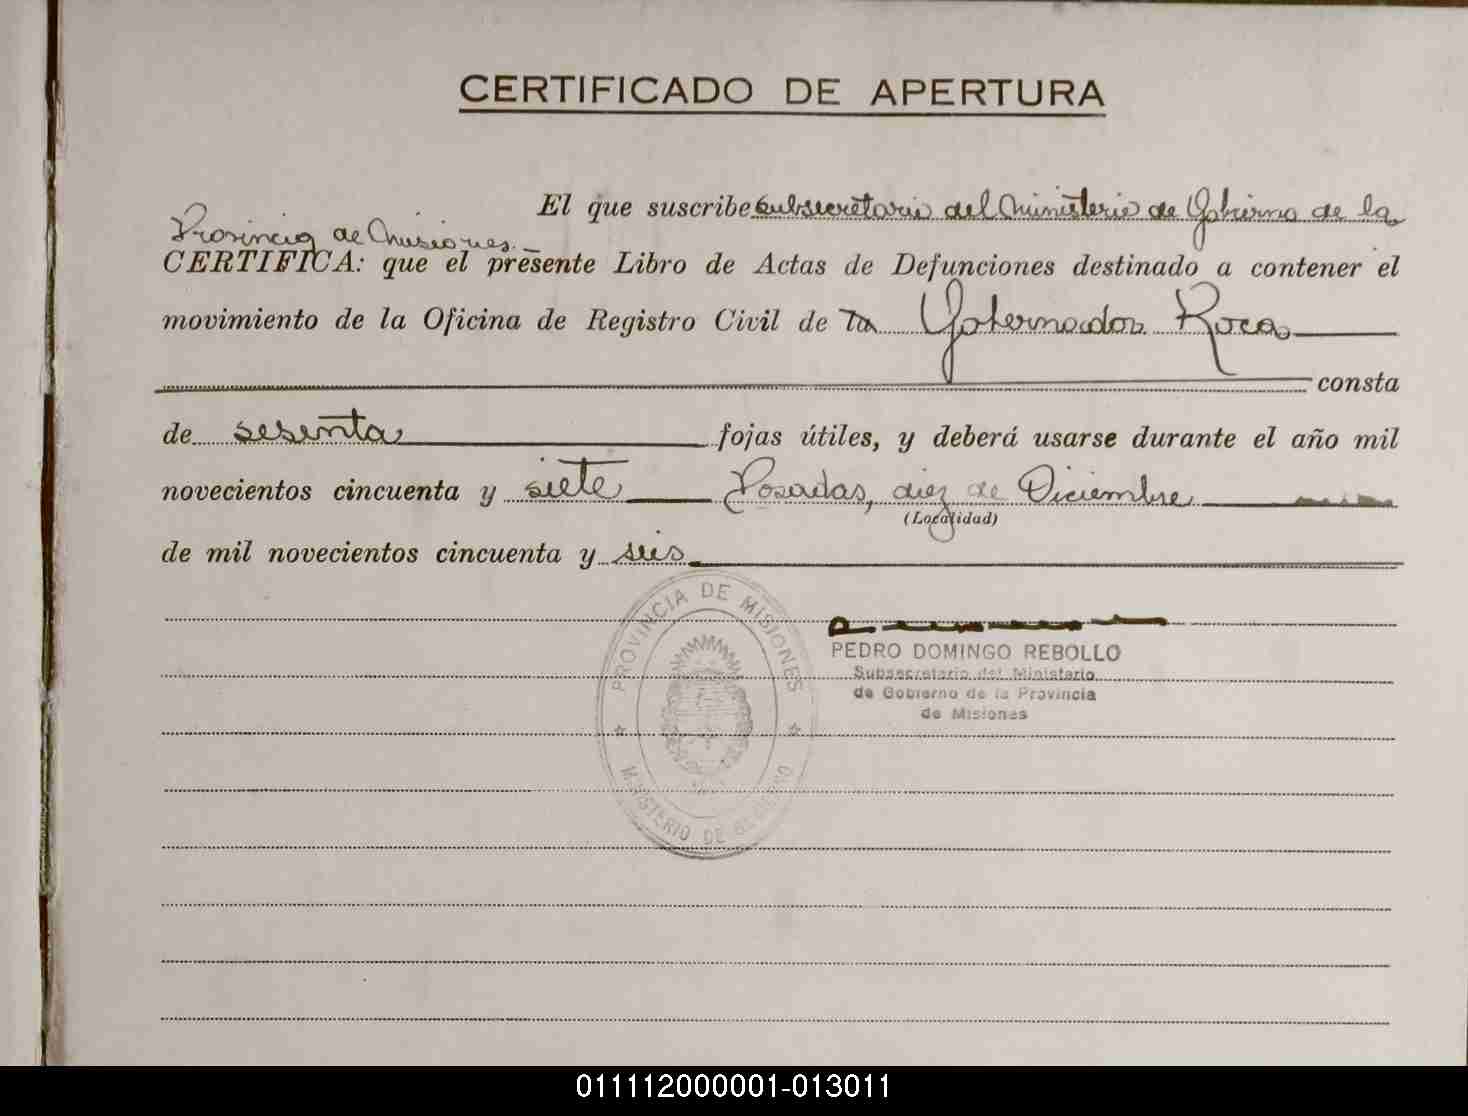 CERTIFICADO DE APERTURA
El que suscribe subsecretario del Ministerio de Gobierno de la
Provincia de Misiones.-
CERTIFICA: que el presente Libro de Actas de Defunciones destinado a contener el
movimiento de la Oficina de Registro Civil de la Gobernador Roca
consta
de sesenta fojas útiles, y deberá usarse durante el año mil
novecientos cincuenta y siete Posadas, diez de Diciembre
(Localidad)
de mil novecientos cincuenta y seis
PROVINCIA DE MISIONES
MINISTERIO DE GOBIERNO
PEDRO DOMINGO REBOLLO
Subsecretario del Ministerio
de Gobierno de la Provincia
de Misiones
011112000001-013011